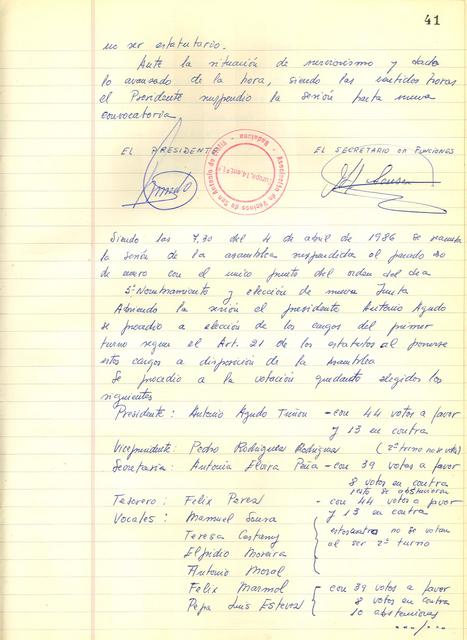 41
no ser estatutario.
Ante la situación de nerviosismo y dado
lo avanzado de la hora, siendo las veintidos horas
el Presidente suspendio la sesión hasta nueva
convocatoria
EL PRESIDENTE
EL SECRETARIO en FUNCIONES
Asociación de Vecinos de San Antonio de Padua - Badajoz
Siendo las 7,30 del 4 de abril de 1986 se reanuda
la sesión de la asamblea suspendida el pasado 30
de enero con el unico punto del orden del dia
5º Nombramiento y elección de nueva Junta
Abriendo la sesión el presidente Antonio Agudo
se procedio a elección de los cargos del primer
turno segun el Art. 21 de los estatutos al ponerse
estos cargos a disposición de la Asamblea
Se procedio a la votación quedando elegidos los
siguientes
Presidente: Antonio Agudo - con 44 votos a favor
y 13 en contra
Vicepresidente: Pedro Rodriguez Rodriguez (2º turno no se vota)
Secretaria: Antonia Elvira Peña - con 39 votos a favor
8 votos en contra
se abstuvieron
Tesorero: Felix Perea - con 44 votos a favor
y 13 en contra
Vocales: Manuel Sousa
Teresa
Elpidio Moreira
Antonio Moral
estos cuatro no se votan
al ser 2º turno
Felix Marmol - con 39 votos a favor
Pepa Luis Esteves 8 votos en contra
10 abstenciones
.../...